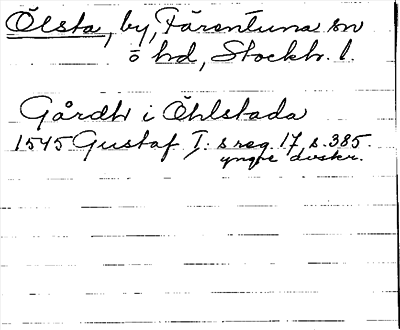 Ölsta, by, Färentuna sn
o hd, Stockh. l.
Gårdh i Öhlstada
1545 Gustaf I: s reg. 17, s. 385.
yngre avskr.